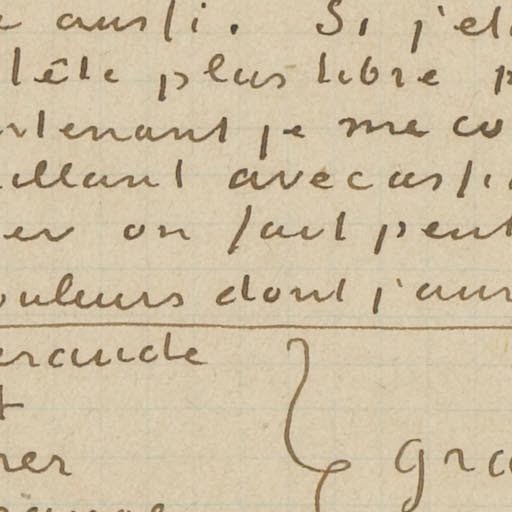 aussi. Si j'et
tête plus libre p
ntenant je me co
aillant avec assi
er on fait peut
ouleurs dont j'aur
eraude
t
rer
gra